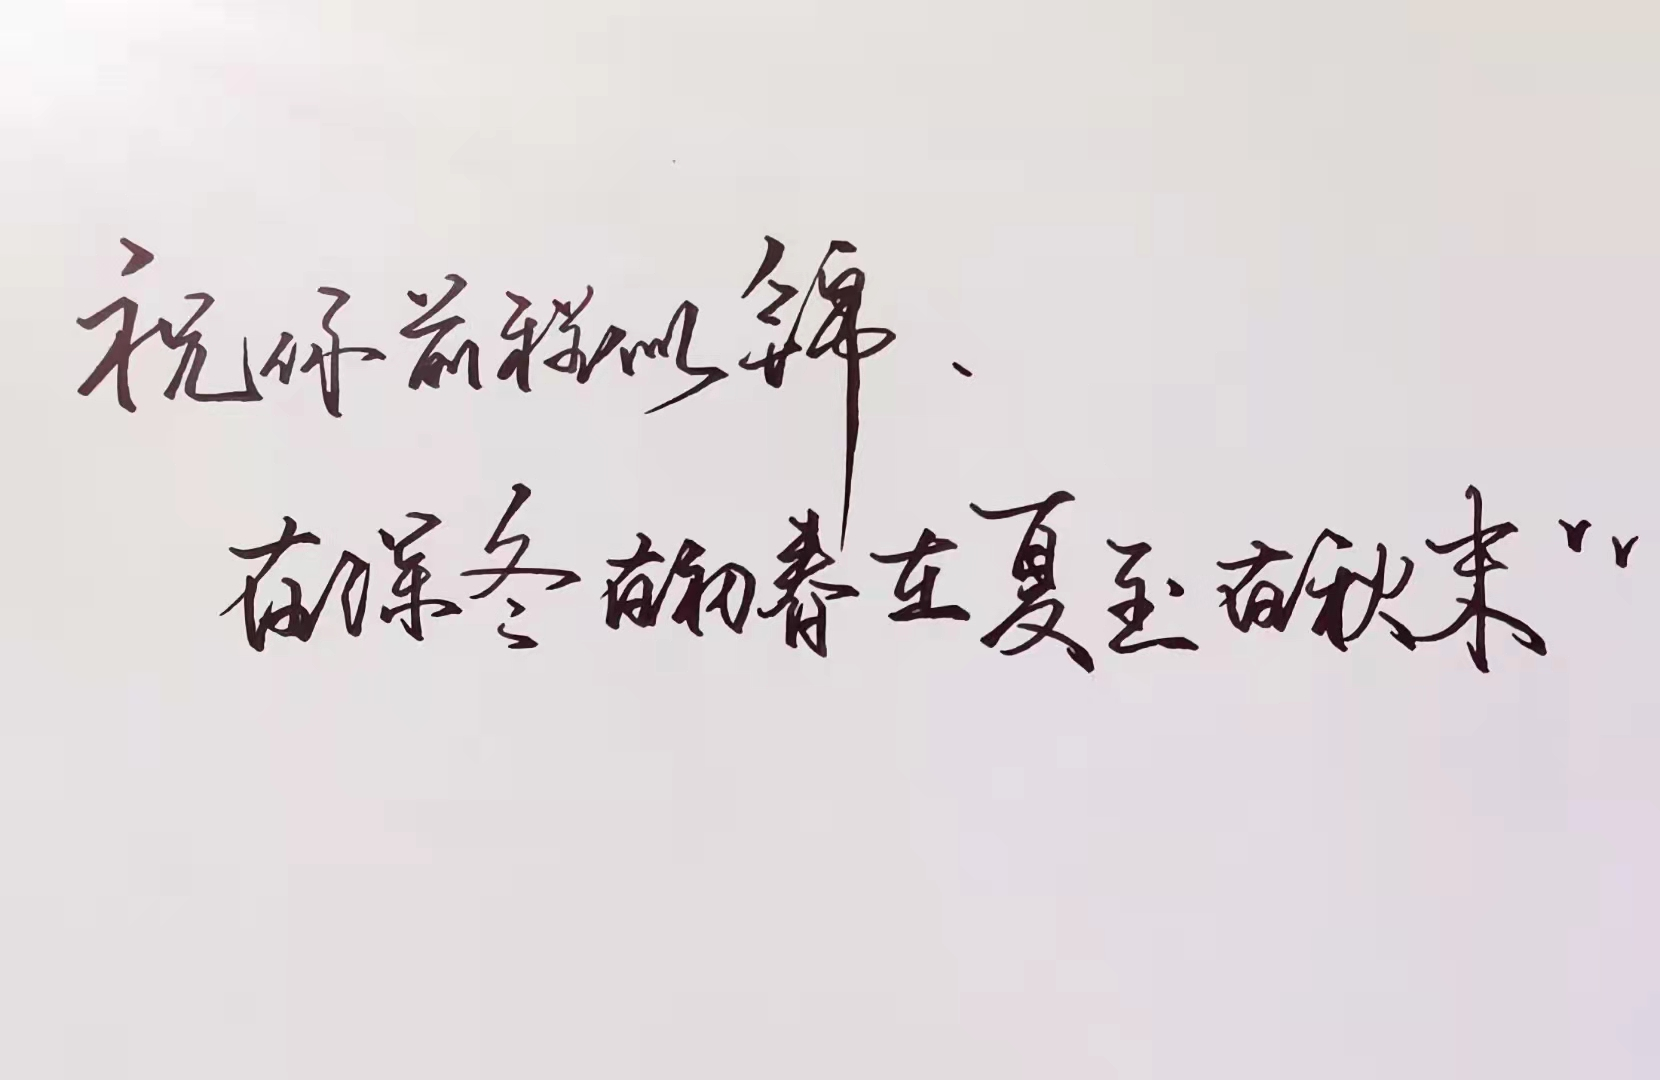 祝你前程似锦、
在深冬在初春在夏至在秋末